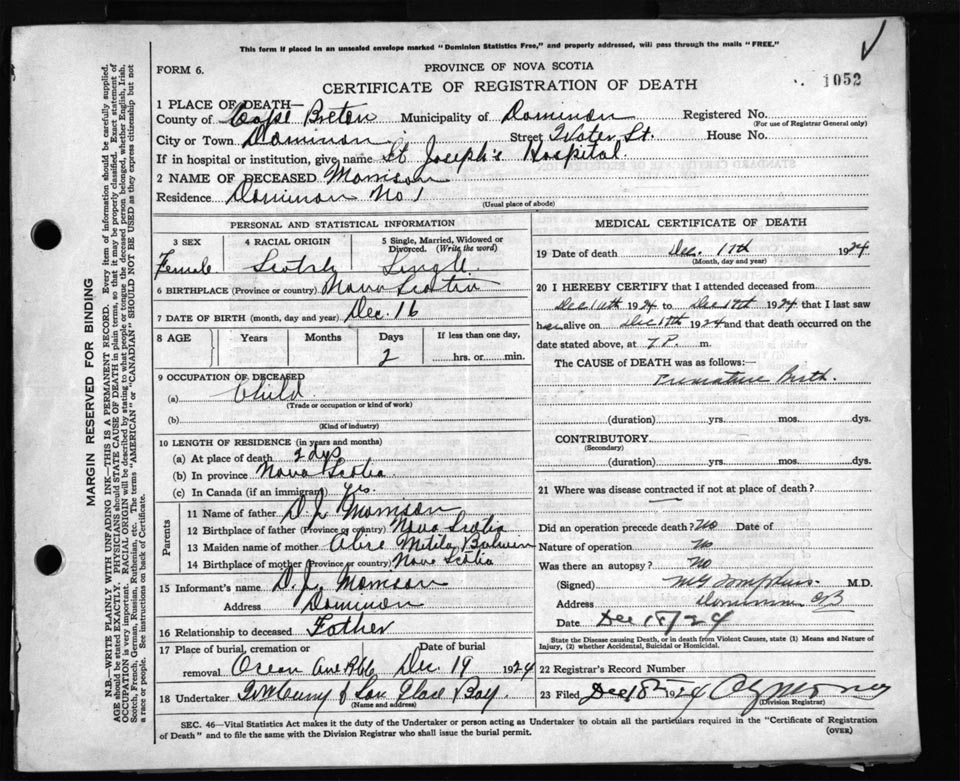 This form if placed in an unsealed envelope marked "Dominion Statistics Free," and properly addressed, will pass through the mails "FREE."
FORM 6.
PROVINCE OF NOVA SCOTIA
CERTIFICATE OF REGISTRATION OF DEATH
1052
1 PLACE OF DEATH—
County of Cape Breton Municipality of Dominion Registered No.
(For use of Registrar General only)
City or Town Dominion Street Water St. House No.
If in hospital or institution, give name St Joseph's Hospital
2 NAME OF DECEASED Morrison
Residence Dominion No 1
(Usual place of abode)
PERSONAL AND STATISTICAL INFORMATION
3 SEX
Female
4 RACIAL ORIGIN
Scotch
5 Single, Married, Widowed or Divorced. (Write the word)
Single
6 BIRTHPLACE (Province or country) Nova Scotia
7 DATE OF BIRTH (month, day and year) Dec. 16
8 AGE Years Months Days If less than one day,
2 hrs. or min.
9 OCCUPATION OF DECEASED
(a) Child
(Trade or occupation or kind of work)
(b)
(Kind of industry)
10 LENGTH OF RESIDENCE (in years and months)
(a) At place of death 2 dys
(b) In province Nova Scotia
(c) In Canada (if an immigrant) yes
Parents
11 Name of father D. J. Morrison
12 Birthplace of father (Province or country) Nova Scotia
13 Maiden name of mother Alice
14 Birthplace of mother (Province or country) Nova Scotia
15 Informant's name D. J. Morrison
Address Dominion
16 Relationship to deceased Father
17 Place of burial, cremation or removal Ocean Ave Date of burial Dec. 19 1924
18 Undertaker Glace Bay.
(Name and address)
MEDICAL CERTIFICATE OF DEATH
19 Date of death Dec. 17th 1924
(Month, day and year)
20 I HEREBY CERTIFY that I attended deceased from
Dec 16th 1924 to Dec 17th 1924 that I last saw
her alive on Dec 17th 1924 and that death occurred on the
date stated above, at 7 P. m.
The CAUSE of DEATH was as follows:—
Premature Birth.
(duration) yrs. mos. dys.
CONTRIBUTORY
(Secondary)
(duration) yrs. mos. dys.
21 Where was disease contracted if not at place of death?
Did an operation precede death? No Date of
Nature of operation No
Was there an autopsy? No
(Signed) M.D.
Address Dominion CB
Date Dec 18/24
State the Disease causing Death, or in death from Violent Causes, state (1) Means and Nature of Injury, (2) whether Accidental, Suicidal or Homicidal.
22 Registrar's Record Number
23 Filed Dec 18th 1924
(Division Registrar)
SEC. 46—Vital Statistics Act makes it the duty of the Undertaker or person acting as Undertaker to obtain all the particulars required in the "Certificate of Registration of Death" and to file the same with the Division Registrar who shall issue the burial permit.
(OVER)
MARGIN RESERVED FOR BINDING
N.B.—WRITE PLAINLY WITH UNFADING INK—THIS IS A PERMANENT RECORD. Every item of information should be carefully supplied.
AGE should be stated EXACTLY. PHYSICIANS should STATE CAUSE OF DEATH in plain terms, so that it may be properly classified. Exact statement of
OCCUPATION is very important. RACIAL ORIGIN will be described by stating to what people or tongue the deceased person belonged, whether English, Irish,
Scotch, French, German, Russian, Ruthenian, etc. The terms "AMERICAN" or "CANADIAN" SHOULD NOT BE USED as they express citizenship but not
a race or people. See instructions on back of Certificate.